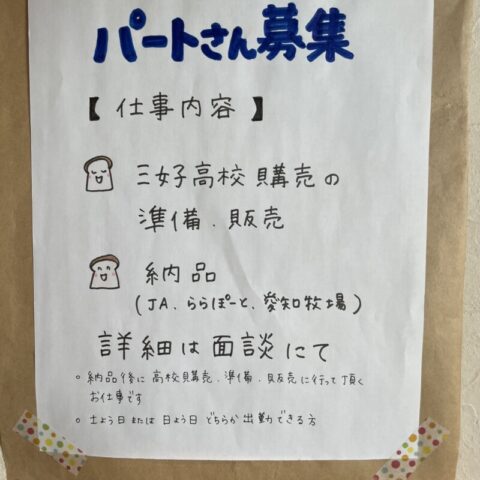 パートさん募集
【 仕事内容 】
三好高校購売の
準備.販売
納品
(JA、ららぽーと、愛知牧場)
詳細は面談にて
◦ 納品後に高校購売.準備.販売に行って頂く
お仕事です
◦ 土よう日または日よう日どちらか出勤できる方